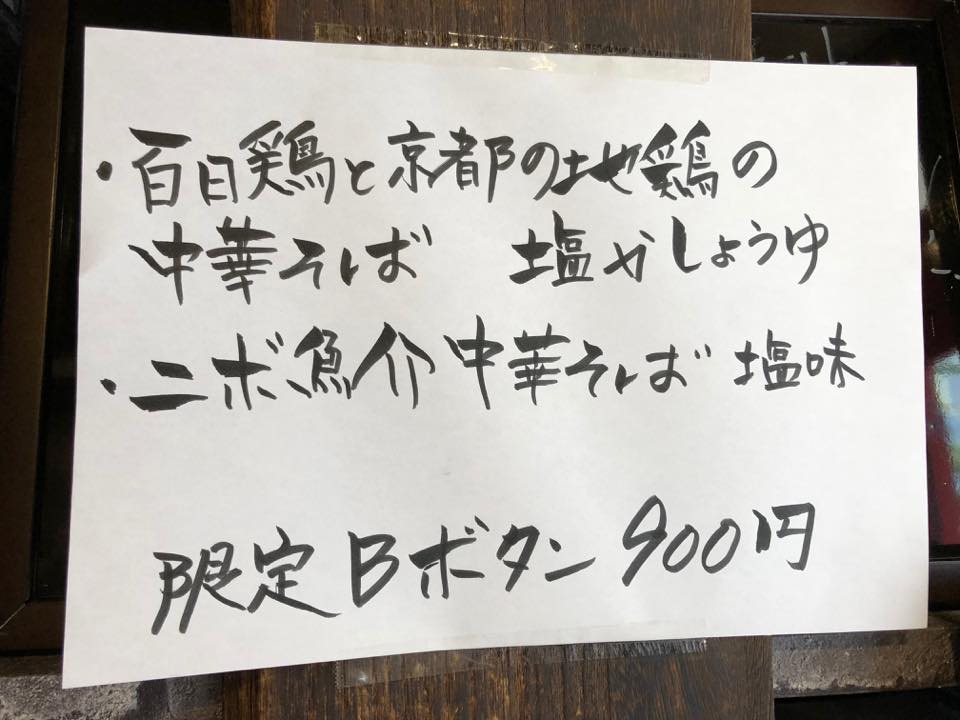 ・百日鶏と京都の地鶏の
中華そば 塩かしょうゆ
・ニボ魚介中華そば 塩味
限定Bボタン900円